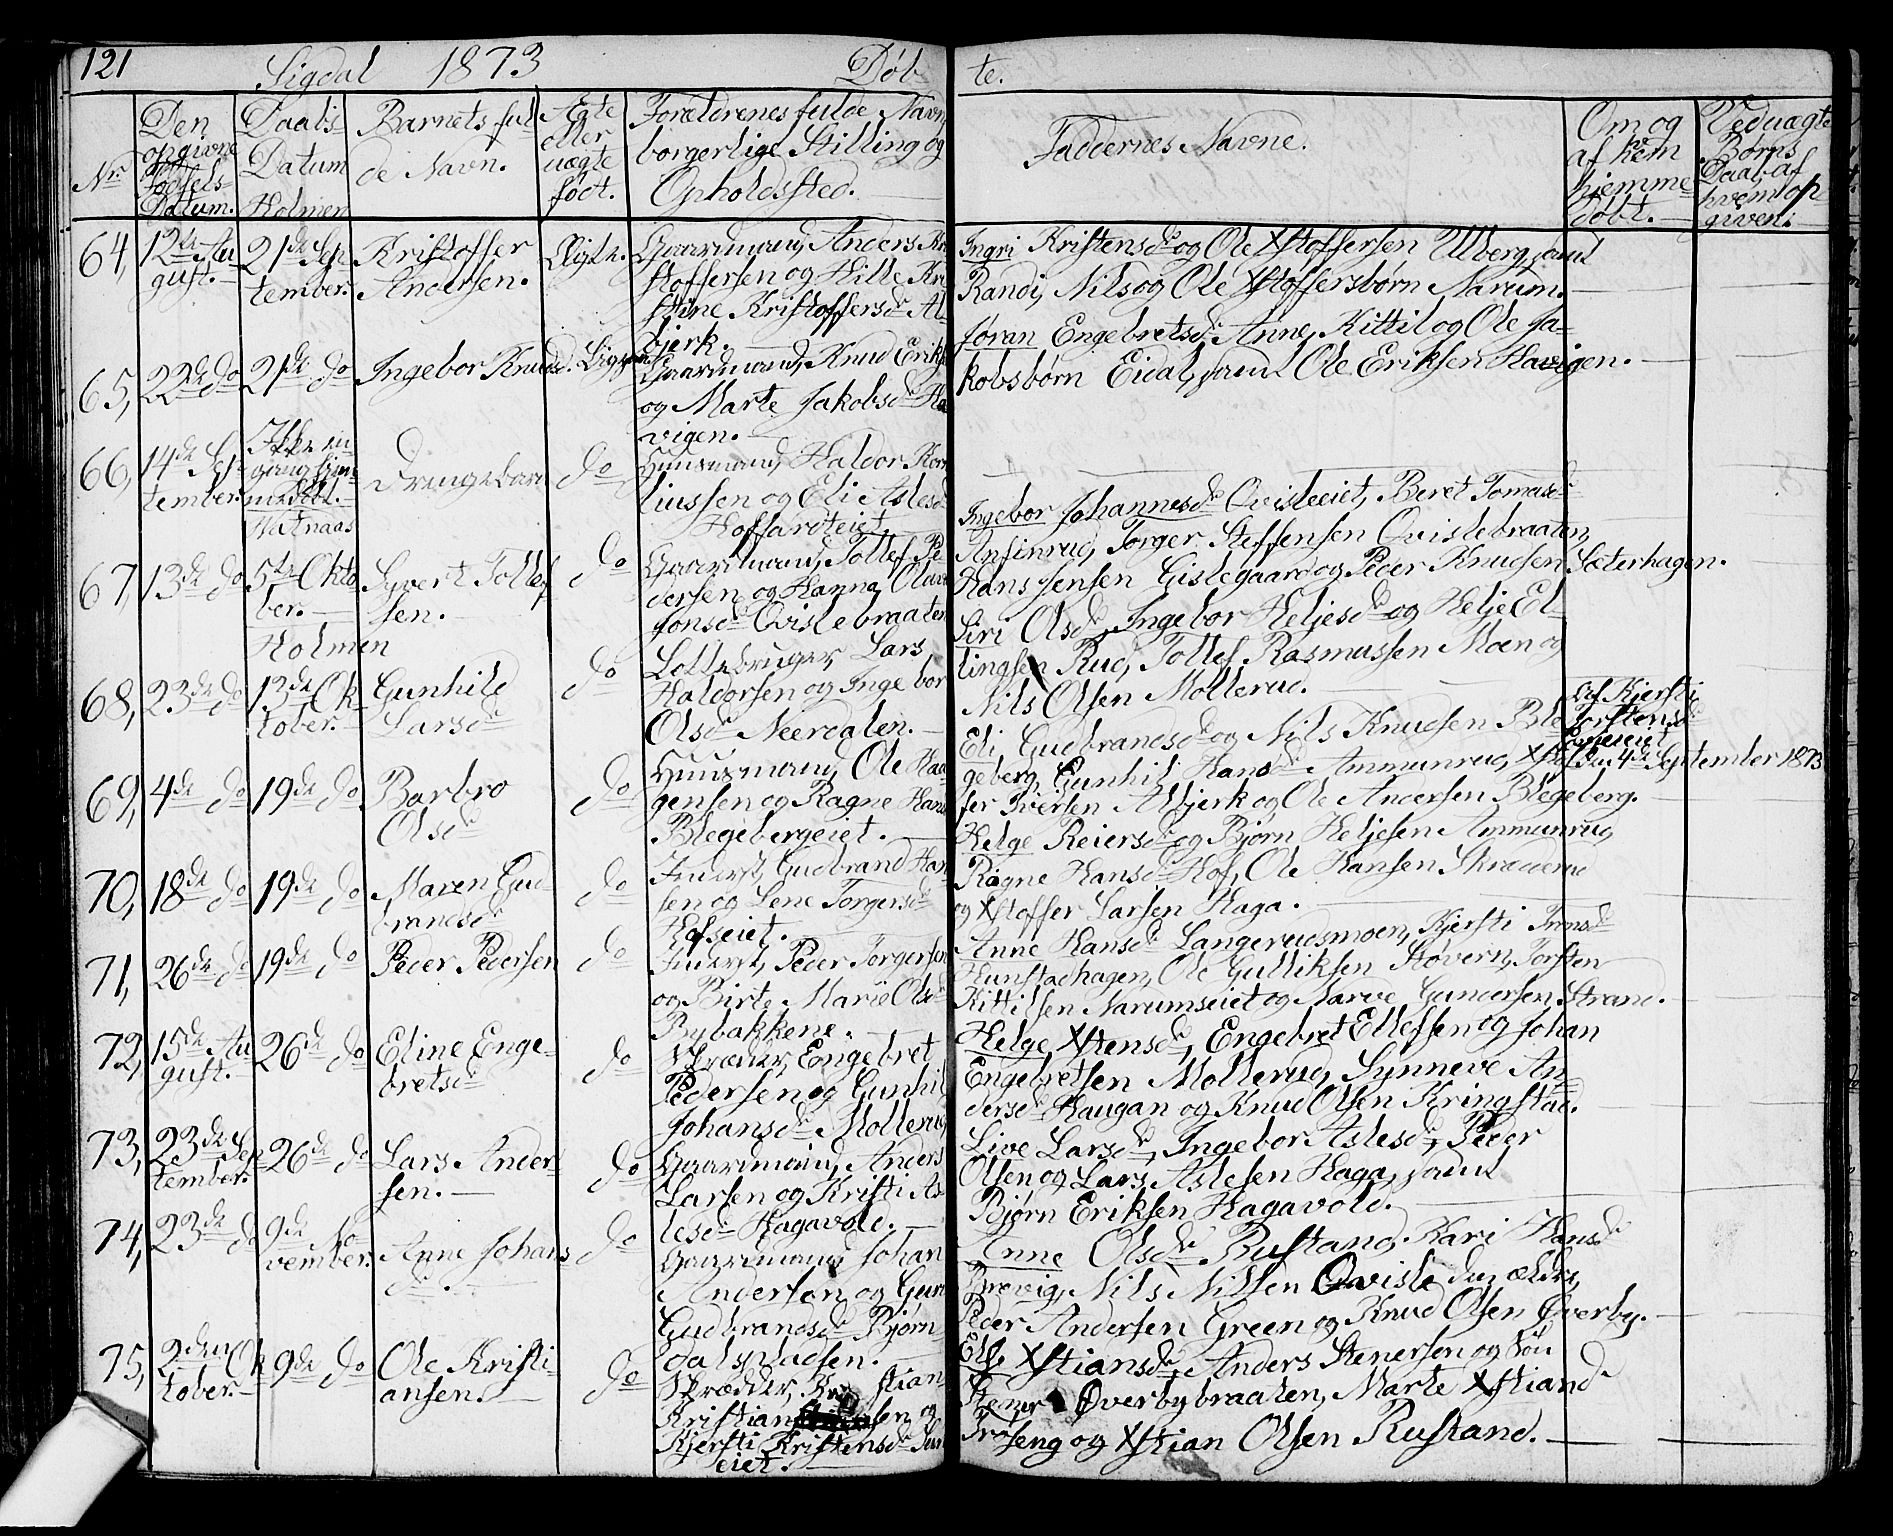 121 Sigdal 1873 Døb te.
Nr.
Den
opgivne
Fødsels-
Datum.
Daabs-
Datum
Holmen
Barnets ful
de Navn.
Ægte
eller
uægte
født.
Forældrenes fulde Navn,
borgerlige Stilling og
Opholdssted.
Faddernes Navne.
Om og
af hvem
hjemme-
døbt.
Veduagte
Børns
Daab, af
hvem op
given.
64, 12te Au
gust.
21de Sep
tember.
Kristoffer
Andersen.
Ægte.
Gaardmand, Anders Kri
stoffersen og Hille Kri
stine Kristoffersdr Al-
bjerk.
Ingri Kristensdr og Ole Xstoffersen Ulberg, samt
Randi, Nils og Ole Xstoffersbørn Narum.
65, 22de do
21de do
Ingebor Knudsd.
Gaardmand, Knud Eriks
og Marte Jakobsdr Ha
vigen.
Jøran Engebretsdr, Anne, Kittil og Ole Ja-
kobsbørn Eidal, samt Ole Eriksen Havigen.
66, 14de Sep
tember.
Drengebarn
do
Huusmand, Haldor Kor
liussen og Eli Aslesd
Hoffardteiet
67, 13de do
Watnaas
5te Okto
ber.
Syvert Tollef
sen.
do
Gaardmand, Tollef Pe
dersen og Hanna Olava
Jonsdr Qvislebraaten
Ingebor Johannesdr Qvisleeiet, Beret Tomasdr
Anfinrud, Torger Steffensen Qvislebraaten,
Hans Jensen Gislegaard og Peder Knudsen Sæterhagen.
68, 23de do
Holmen
13de Ok
tober.
Gunhild
Larsdr
do
Lottebruger, Lars
Haldorsen og Ingebor
Olsdr Neerdalen.
Siri Olsdr, Ingebor Heljesdr og Helje El-
lingsen Rud, Tollef Rasmussen Moen og
Nils Olsen Mollerud.
69, 4de do
19de do
Barbro
Olsdr
do
Huusmand, Ole Haa
gensen og Ragne Hans
Blegebergeiet.
Eli Gudbrandsdr og Nils Knudsen Ble
geberg, Gunhil Hansdr Ammunrud, Xstof
fer Iversen Albjerk og Ole Andersen Blegeberg.
Af Kjersti
Torstensdr
den 4de September 1873
70, 18de do
19de do
Maren Gud
brandsdr
do
Inderst, Gudbrand Han
sen og Lene Torgersdr
Hofseiet.
Helge Reiersdr og Bjørn Heljesen Ammunrud,
Ragne Hansdr Hof, Ole Hansen Skrederud
og Xstoffer Larsen Haga.
71, 26de do
19de do
Peder Pedersen
do
Inderst, Peder Torgersen
og Birte Marie Olsdr
Bybakkene.
Anne Hansdr Langerudsmoen, Kjersti Tronsdr
Hunstadhagen, Ole Gulliksen Støvern, Torsten
Kittilsen Narumseiet og Marve Gundersen Strand.
72, 15de Au
gust.
26de do
Eline Enge-
bretsdr
do
Skræder, Engebret
Pedersen og Gunhil
Johansdr Mollerud
Helge Xstensdr, Engebret Ellefsen og Johan
Engebretsen Mollerud, Synneve An-
dersdr Haugan og Knud Olsen Kringstad.
73, 23de Sep
tember.
26de do
Lars Ander
sen.
do
Gaardmand, Anders
Larsen og Kristi As
lesdr Hagavold.
Live Larsdr, Ingebor Aslesdr, Peder
Olsen og Lars Aslesen Haga, samt
Bjørn Eriksen Hagavold.
74, 23de do
9de No
vember.
Anne Johans
dr.
do
Gaardmand Johan
Andersen og Guri
Gudbrandsdr Bjørn
dalspladsen.
Anne Olsdr Rustand, Kari Hansdr
Brevig, Nils Nilsen Qvisle den ældre,
Peder Andersen Green og Knud Olsen Øverby.
75, 2den Ok
tober.
9de do
Ole Kristi-
ansen.
do
Skrædder, Kristian
Kristiansen og
Kjersti Kristensdr
eiet.
Else Xstiansdr, Anders Stenersen og Søn
Stener Øverbybraaten, Marte Xstiansdr
Frøseng og Xstian Olsen Rustand.